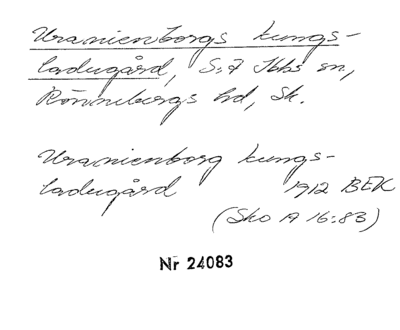 Uranienborgs kungs-
ladugård, S:t Ibbs sn,
Rönnebergs hd, Sk.
Uranienborg kungs-
ladugård 1912 BEK
(Sko A 16:83)
Nr 24083